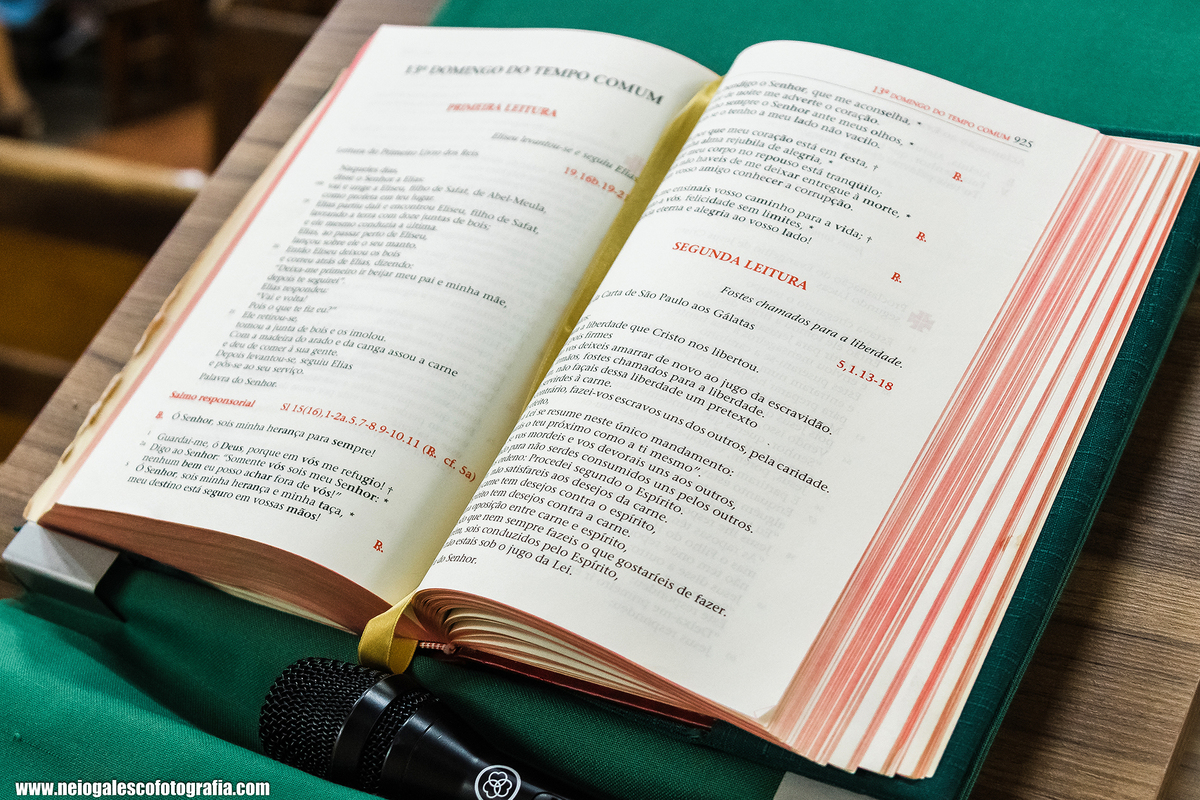 13º DOMINGO DO TEMPO COMUM
PRIMEIRA LEITURA
Eliseu levantou-se e seguiu Elias
Leitura do Primeiro Livro dos Reis
19,16b.19-21
Naqueles dias,
disse o Senhor a Elias:
vai e unge a Eliseu, filho de Safat, de Abel-Meula,
como profeta em teu lugar.
Elias partiu dali e encontrou Eliseu, filho de Safat,
lavrando a terra com doze juntas de bois;
e ele mesmo conduzia a última.
Elias, ao passar perto de Eliseu,
lançou sobre ele o seu manto.
Então Eliseu deixou os bois
e correu atrás de Elias, dizendo:
"Deixa-me primeiro ir beijar meu pai e minha mãe,
depois te seguirei".
Elias respondeu:
"Vai e volta!
Pois o que te fiz eu?"
Ele retirou-se,
tomou a junta de bois e os imolou.
Com a madeira do arado e da canga assou a carne
e deu de comer à sua gente.
Depois levantou-se, seguiu Elias
e pôs-se ao seu serviço.
Palavra do Senhor.
Salmo responsorial Sl 15(16),1-2a.5.7-8.9-10.11 (R. cf. 5a)
R. Ó Senhor, sois minha herança para sempre!
Guardai-me, ó Deus, porque em vós me refugio! †
Digo ao Senhor: "Somente vós sois meu Senhor: *
nenhum bem eu posso achar fora de vós!"
Ó Senhor, sois minha herança e minha taça, *
meu destino está seguro em vossas mãos!
R.
13º DOMINGO DO TEMPO COMUM 925
o Senhor, que me aconselha, *
de noite me adverte o coração.
sempre o Senhor ante meus olhos, *
se o tenho a meu lado não vacilo.
R.
que meu coração está em festa, †
alma rejubila de alegria, *
meu corpo no repouso está tranqüilo;
não haveis de me deixar entregue à morte, *
vosso amigo conhecer a corrupção.
R.
me ensinais vosso caminho para a vida; †
a vós, felicidade sem limites, *
eterna e alegria ao vosso lado!
R.
SEGUNDA LEITURA
Fostes chamados para a liberdade.
Carta de São Paulo aos Gálatas
5,1.13-18
a liberdade que Cristo nos libertou.
firmes
vos deixeis amarrar de novo ao jugo da escravidão.
fostes chamados para a liberdade.
não façais dessa liberdade um pretexto
à carne.
fazei-vos escravos uns dos outros, pela caridade.
Lei se resume neste único mandamento:
o teu próximo como a ti mesmo".
vos mordeis e vos devorais uns aos outros,
para não serdes consumidos uns pelos outros.
Procedei segundo o Espírito.
não satisfareis aos desejos da carne.
tem desejos contra o espírito,
tem desejos contra a carne.
oposição entre carne e espírito,
que nem sempre fazeis o que gostaríeis de fazer.
sois conduzidos pelo Espírito,
não estais sob o jugo da Lei.
do Senhor.
www.neiogalescofotografia.com